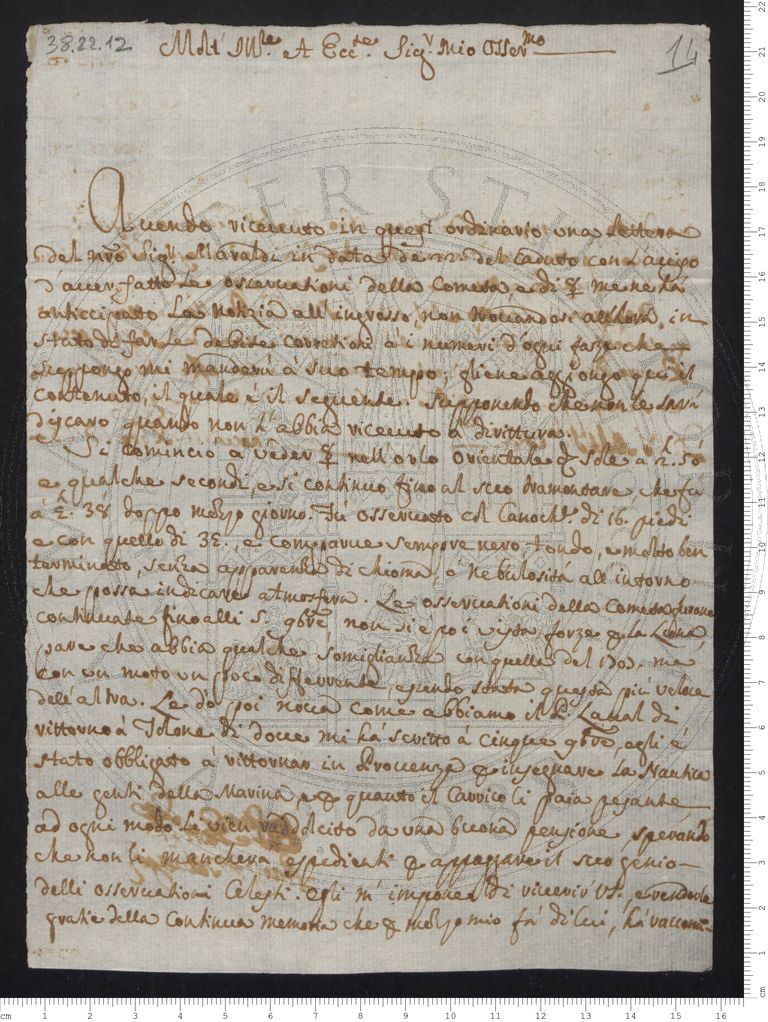 38.22.12
14
Molt' Ill.re et Ecc.te Sig.r mio Osser.mo
Auendo riceuuto in quest ordinario una lettera
del nr̃o Sig.r Maraldi in data de 22 del caduto con l'auiso
d'auer fatto le osseruationi della Cometa e di ☿ me ne hà
anticcipato la notizia all'ingrosso, non trouandosi all'hora in
stato di far le debite correttioni à i numeri d'ogni forze che
suppongo mi manderà à suo tempo; gliene aggiongo qui il
contenuto, il quale è il seguente. Supponendo che non le sarà
discaro quando non l'abbia riceuuto à dirittura.
Si cominciò à veder ☿ nell'orlo orientale del Sole à 2.h 50
e qualche secondi, e si continuò fino al suo tramontare, che fu
à 4.h 38 doppo mezzo giorno. Fu osseruato col Canoch.le di 16. piedi
e con quello di 35., e comparue sempre nero, tondo, e molto ben
terminato, senza apparenza di chioma, ò nebulosità all'intorno
che possa indicare atmosfera. Le osseruationi della Cometa furono
continuate fino alli 5. 9bre non si è poi vista forze p la Luna,
pare che abbia qualche somiglianza con quelle del 1707. ma
con un moto un poco differrente, essendo stata questa più veloce
dell'altra. Le dò poi noua come abbiamo il P. Laual di
vittorno à Tolone di doue mi hà scritto à cinque 9bre, egli è
stato obbligato à vittornar in Prouenza p insegnare la Nautica
alle genti della Marina, e p quanto il Carrico li paia pesante
ad ogni modo li vien raddolcito da una buona pensione, sperando
che non li mancherà espedienti p appagare il suo genio
delli osseruationi Celesti. egli m'impone di riuerir VS. e renderle
gratie della Continua memoria che p mezzo mio fà di lui, hà raccom-